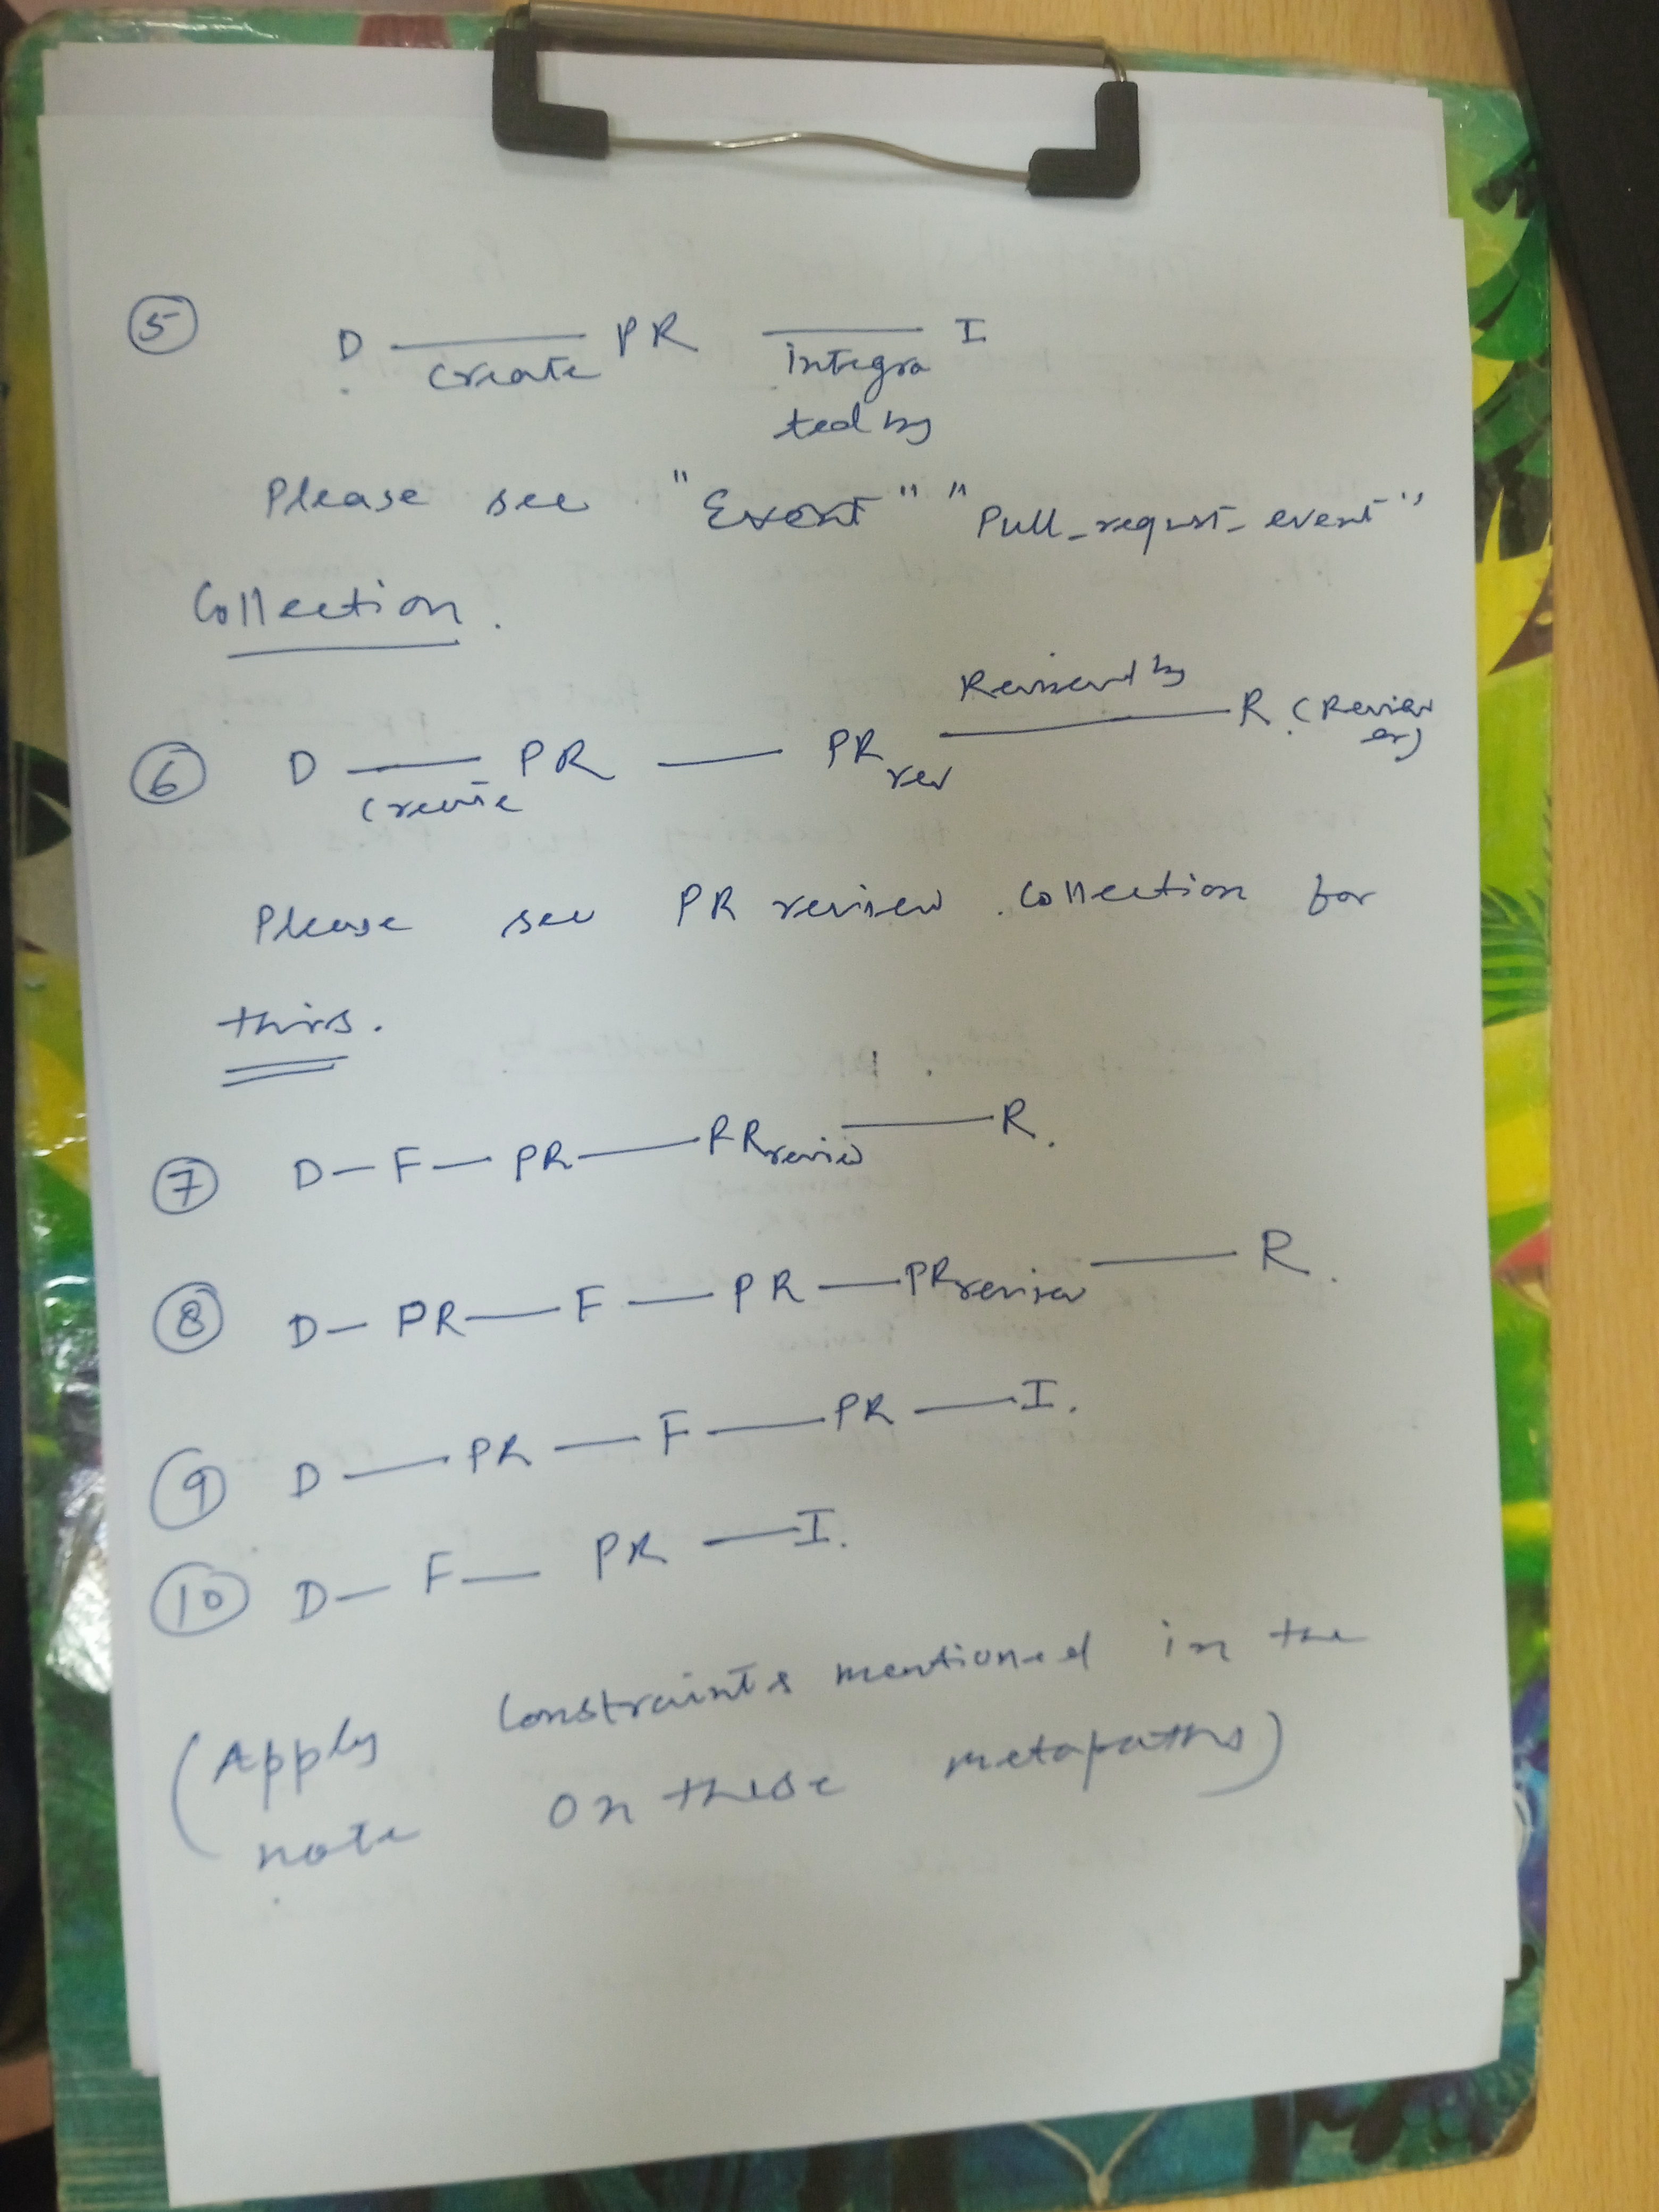 ⑤ D — PR — I
create integra
ted by
Please see "Event" "Pull_request_event"
Collection.
Reviewed by
⑥ D — PR — PR rev — R (Review
er)
Create
Please see PR review collection for
this.
⑦ D — F — PR — PR review — R.
⑧ D — PR — F — PR — PR review — R.
⑨ D — PR — F — PR — I.
⑩ D — F — PR — I.
(Apply constraints mentioned in the
note on these metapaths)